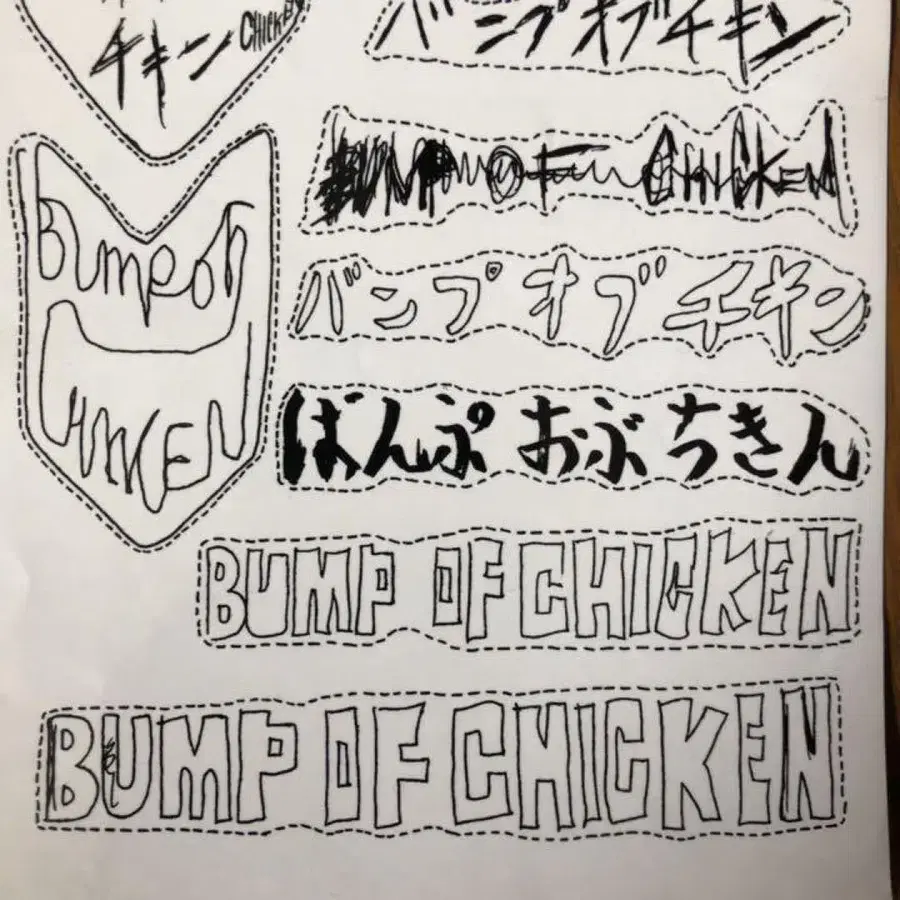 チキン CHICKEN
バンプ オブ チキン
BUMP OF CHICKEN
BUMP OF
CHICKEN
バンプ オブ チキン
ばんぷ おぶ ちきん
BUMP OF CHICKEN
BUMP OF CHICKEN